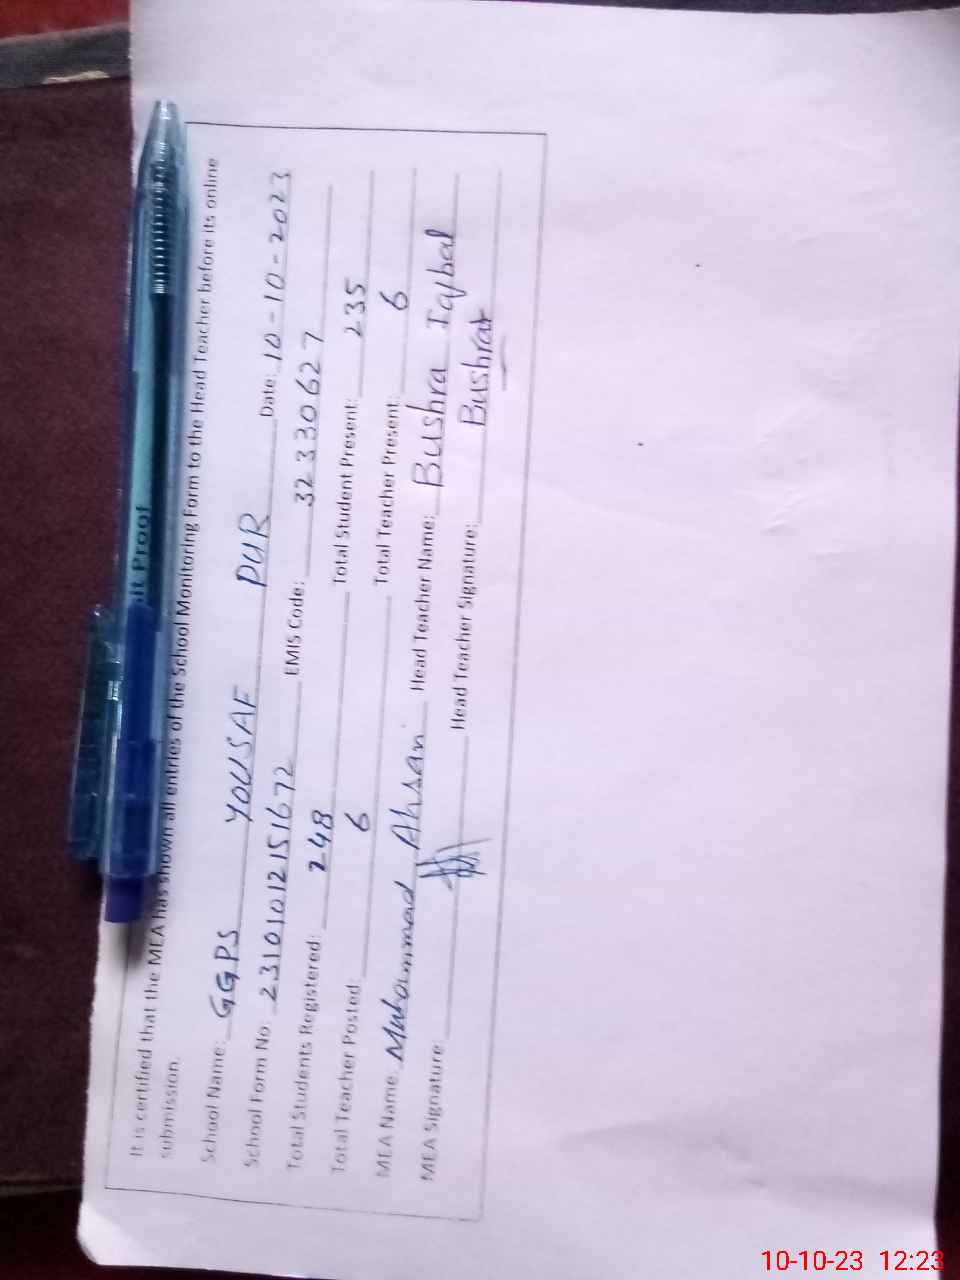 It is certified that the MEA has shown all entries of the School Monitoring Form to the Head Teacher before its online
submission.
School Name: GGPS YOUSAF PUR Date: 10-10-2023
School Form No. 23101012151672 EMIS Code: 32330627
Total Students Registered: 248 Total Student Present: 235
Total Teacher Posted: 6 Total Teacher Present: 6
MEA Name: Muhammad Ahsan Head Teacher Name: Bushra Iqbal
MEA Signature: Head Teacher Signature: Bushra
Proof
10-10-23 12:23